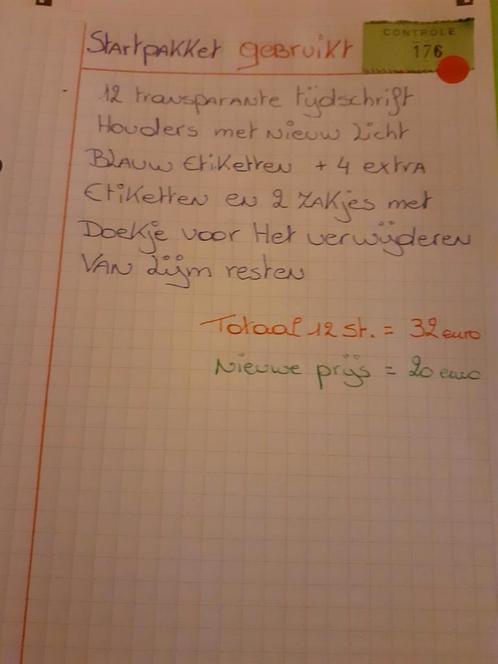 Startpakket gebruikt
CONTROLE
176
- 12 transparante tijdschrift
Houders met nieuw licht
Blauw etiketten + 4 extra
Etiketten en 2 zakjes met
Doekje voor Het verwijderen
van lijm resten
Totaal 12 st. = 32 euro
Nieuwe prijs = 20 euro